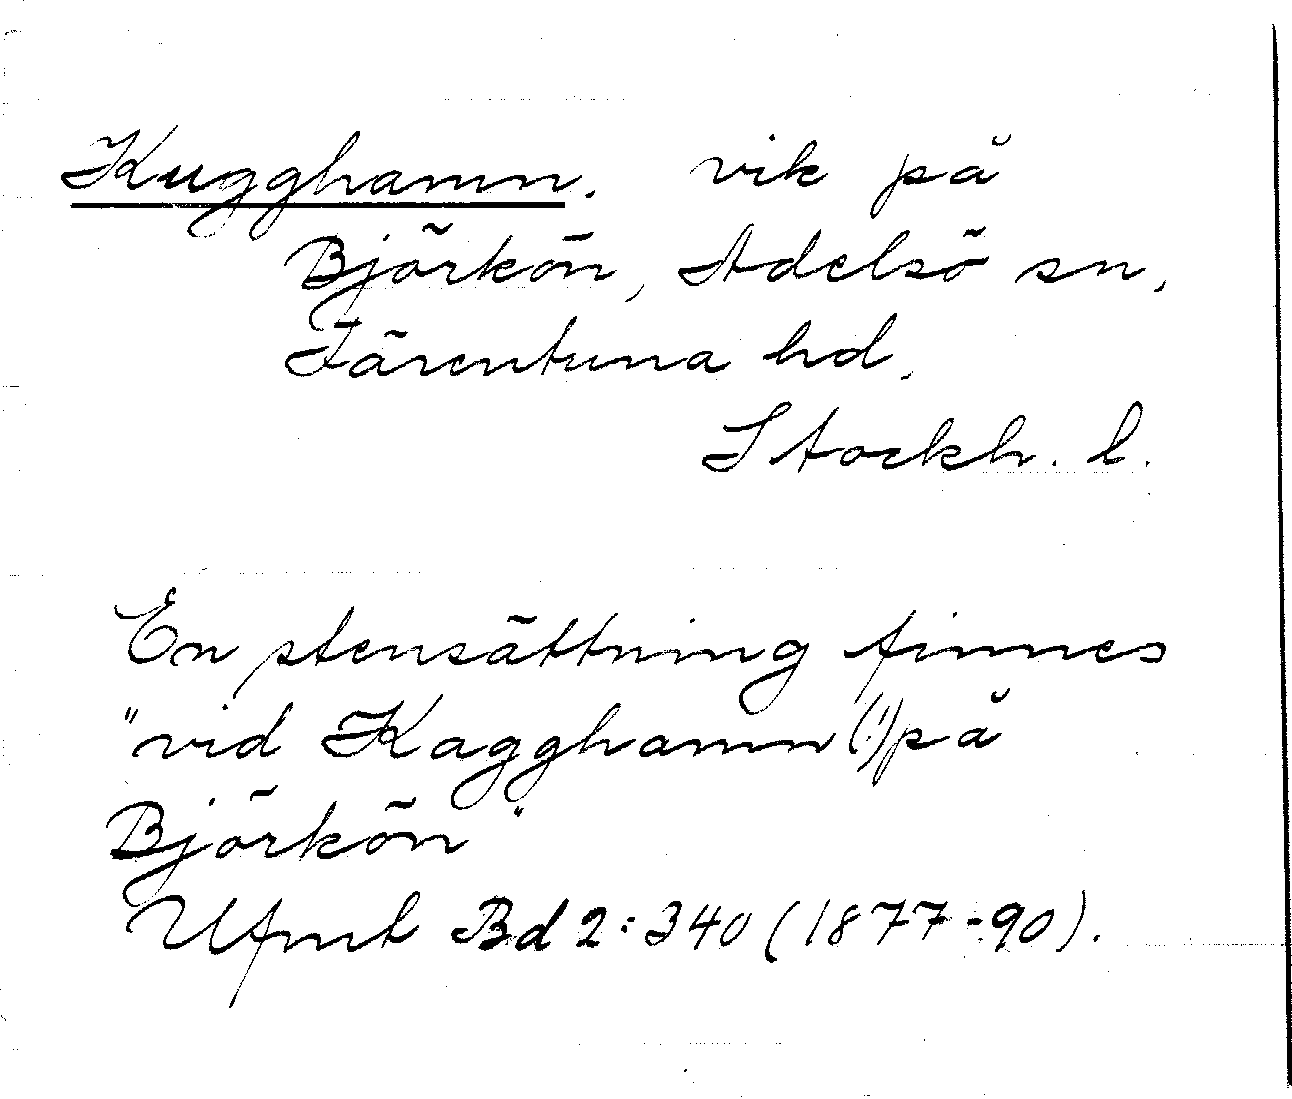 Kugghamn. vik på
Björkön, Adelsö sn,
Färentuna hd,
Stockh. l.
En stensättning finnes
"vid Kagghamn(!) på
Björkön"
Ufmt Bd 2:340 (1877-90).